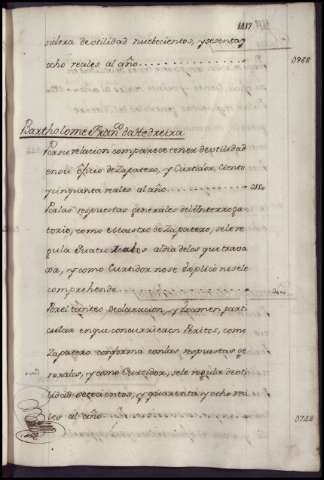 dera de utilidad nuebecientos, y sesenta y
ocho reales al año 0968
Bartholome Fran.co da Hedreira
Por su relacion comparece tener de utilidad
en su oficio de Zapatero, y Curtidor, ciento
y cinquenta reales al año
Por las respuestas generales del Interroga
torio, como es cau de Zapatero, se le re
gula quatro reales al dia de los que trava
xa, y como Curtidor no se explicó ni se le
comprehende
Por el declaracion, y examen parti
cular en que concurrieron Peritos, como
Zapatero conforma con las respuestas ge
nerales, y como Curtidor, se le regula de uti
lidad setecientos, y quarenta y ocho rea
les al año 0748